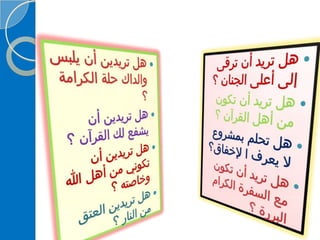 هل تريد أن ترقى
إلى أعلى الجنان ؟
هل تريد أن تكون
من أهل القرآن ؟
هل تحلم بمشروع
لا يعرف ا لإخفاق؟
هل تريد أن تكون
مع السفرة الكرام
البررة ؟
هل تريدين أن يلبس
والداك حلة الكرامة
؟
هل تريدين أن
يشفع لك القرآن ؟
هل تريدين أن
تكونى من أهل الله
وخاصته ؟
هل تريدين العتق
من النار ؟